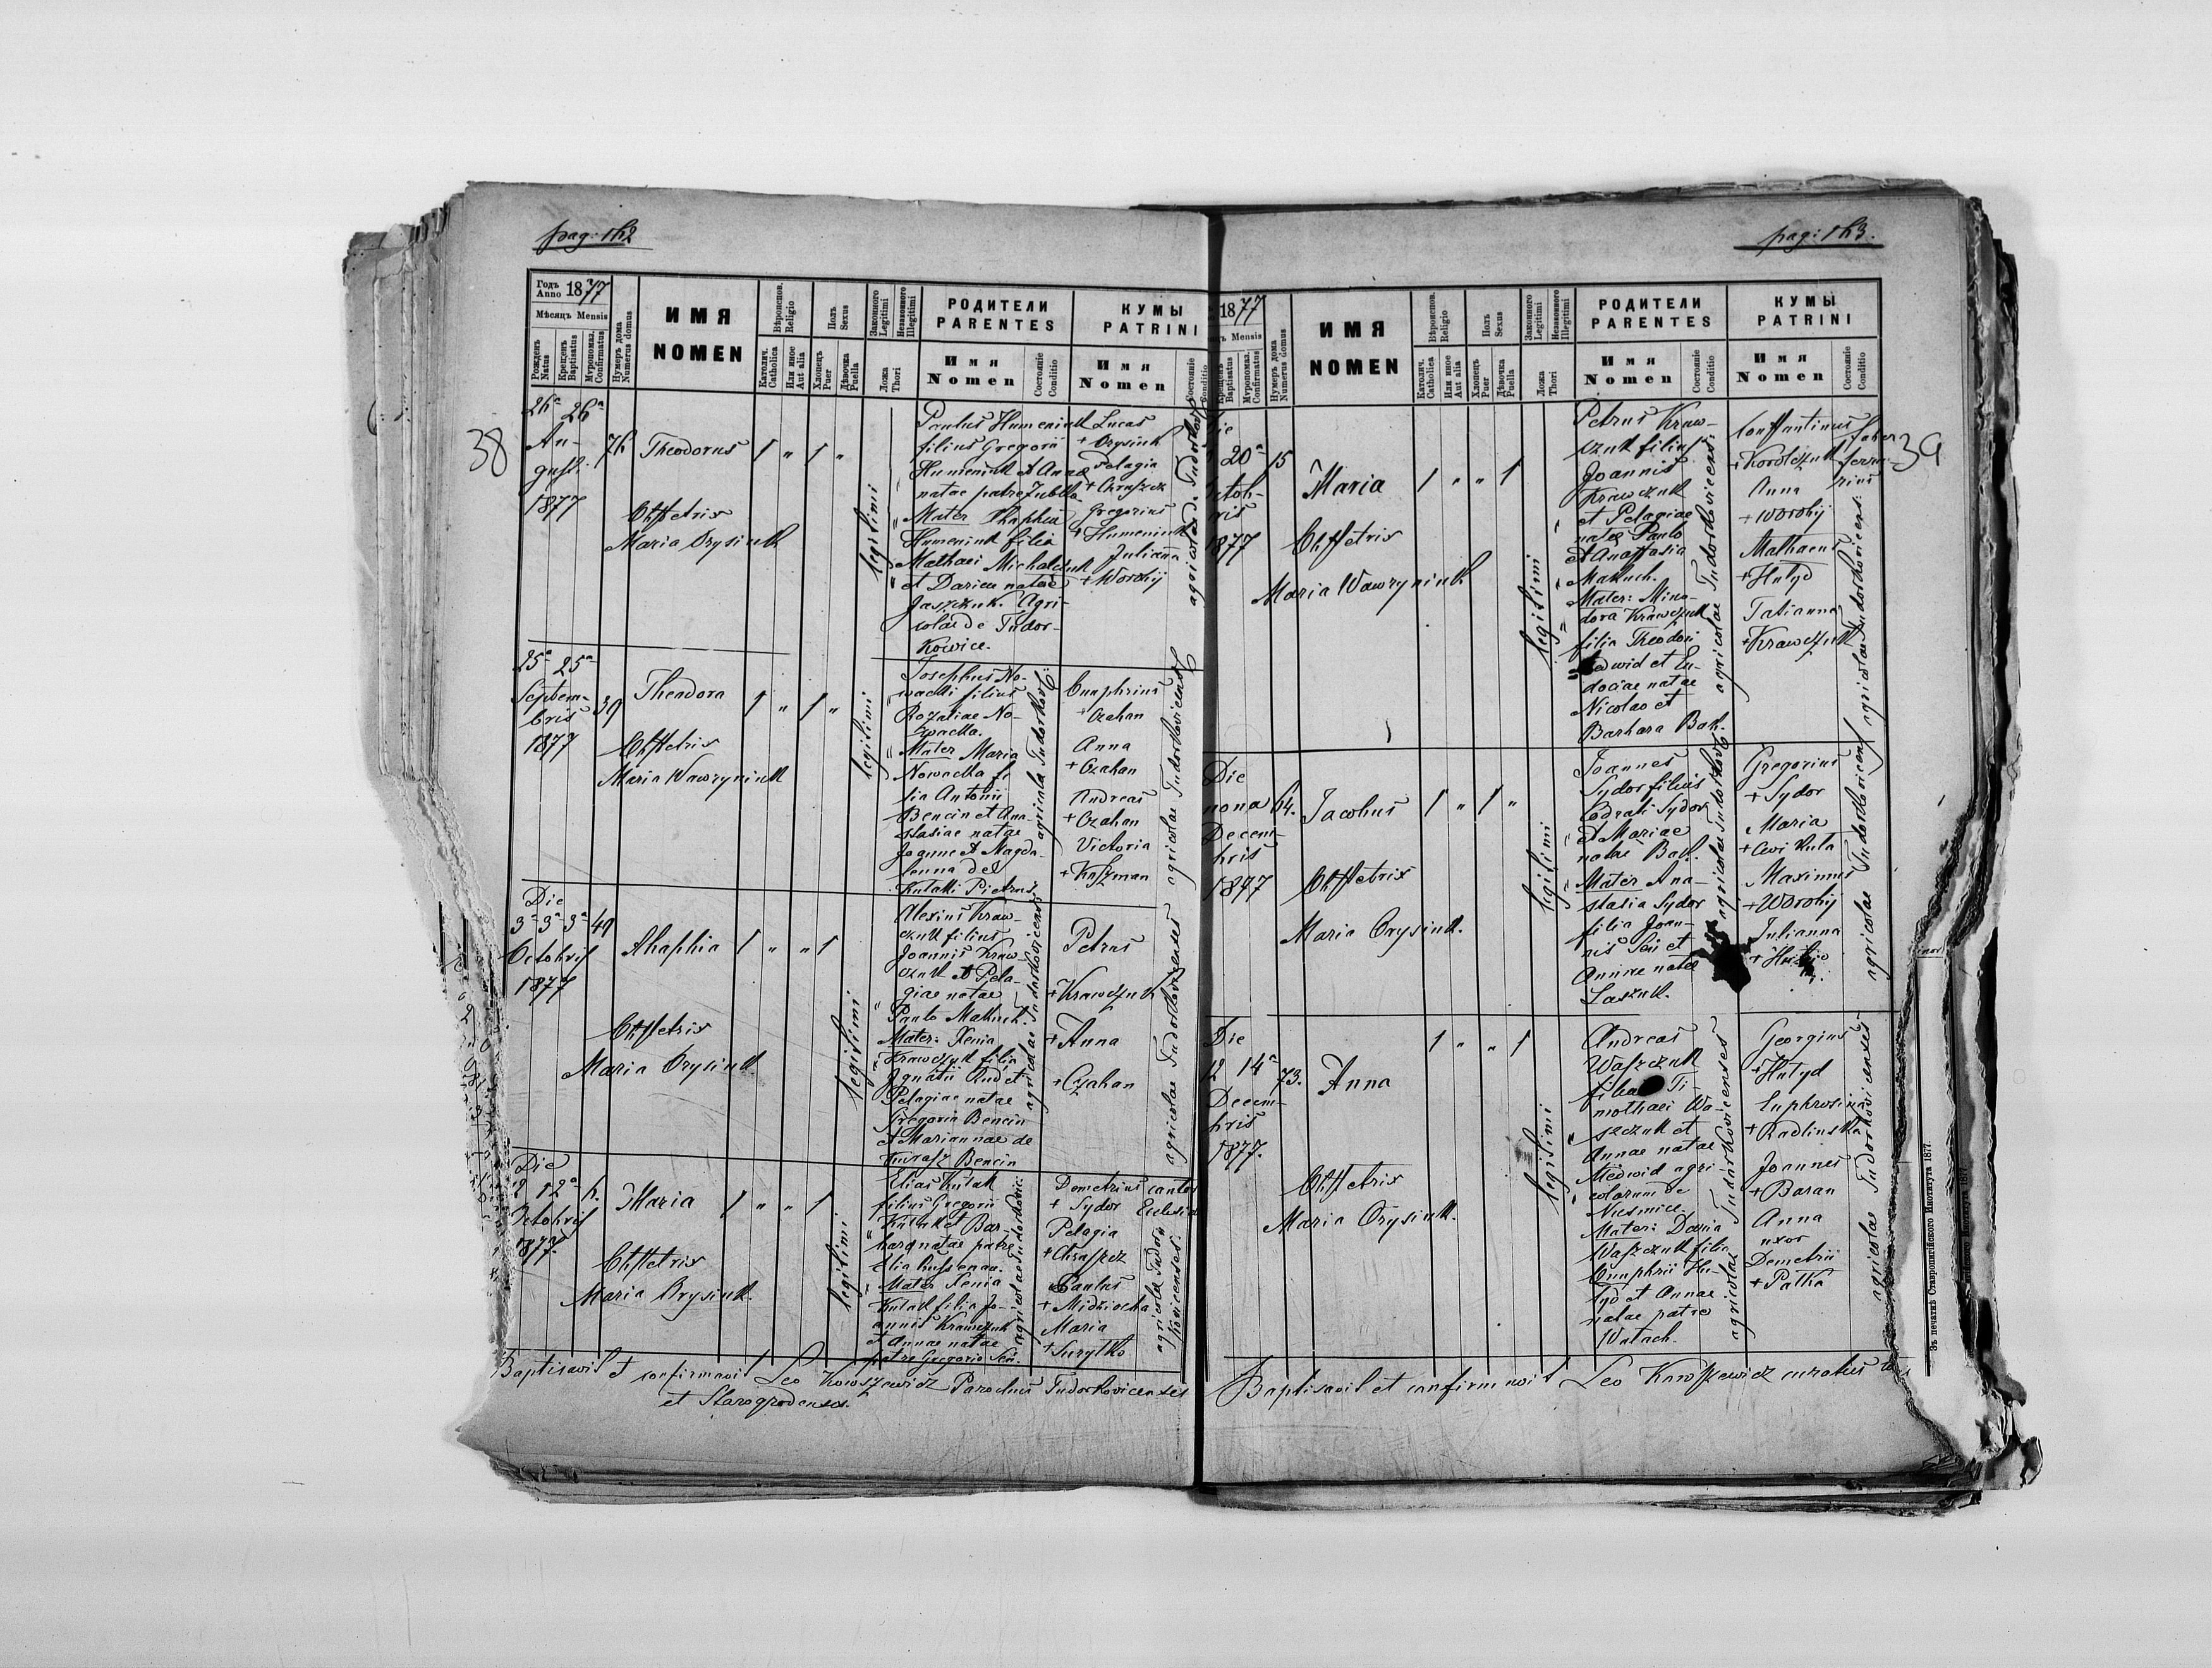 pag: 142
38
Годъ
Anno 1877
Мѣсяцъ Mensis
Рожденъ
Natus
Крещенъ
Baptisatus
Мѵропомаз.
Confirmatus
Нумеръ дома
Numerus domus
ИМЯ
NOMEN
Вѣроиспов.
Religio
Католич.
Catholica
Или иное
Aut alia
Полъ
Sexus
Хлопецъ
Puer
Дѣвочка
Puella
Законного
Legitimi
Незаконного
Illegitimi
Ложа
Thori
РОДИТЕЛИ
PARENTES
Имя
Nomen
Состояніе
Conditio
КУМЫ
PATRINI
Имя
Nomen
Состояніе
Conditio
26ª 26ª
Au-
gusti
1877
76
Theodorus
1 " 1 "
Obstetrix
Maria Orysiuk
legitimi
Paulus Humeniuk
filius Gregorii
Humeniuk et Annae
natae patre
Mater
Humeniuk filia
Mathaei Michalczuk
et Dariae natae
Jaszczuk. Agri-
colae de Tudor-
kowice.
Lucas
+ Orysiuk
Pelagia
+ Chraszcz
Gregorius
+ Humeniuk
Julianna
+ Worohij
agricolae de Tudorkow
25ª 25ª
Septem-
bris
1877
39
Theodora
1 " 1 "
Obstetrix
Maria Wawryniuk
legitimi
Josephus No-
wacki filius
Rozaliae No-
wacka.
Mater Maria
Nowacka fi
lia Antonii
Bencin et Ana-
stasiae natae
Joanne et Magda-
lenna de
Kulakki Pietrus
agricola Tudorkov
Onuphrius
+ Czahan
Anna
+ Czahan
Andreas
+ Czahan
Victoria
+ Kaszman
agricolae Tudorkovicenses
Die
3ª 3ª 3ª
Octobris
1877
49
Ahaphia
1 " " 1
Obstetrix
Maria Orysiuk
legitimi
Alexius Kraw-
czuk filius
Joannis Kraw-
czuk et Pela-
giae natae
Paulo Makuch.
Mater: Xenia
Krawczuk filia
Ignatii Rud et
Pelagiae natae
Gregorio Bencin
et Mariannae de
Bencin
agricolae Tudorkovicenses
Petrus
+ Krawczuk
+ Anna
+ Czahan
agricolae Tudorkovicenses
Die
12ª
Octobris
1877.
Maria
1 " " 1
Obstetrix
Maria Orysiuk.
legitimi
Elias Kulak
filius Gregorii
Kulak et Bar-
bara natae patre
Elia
Mater Xenia
Kulak filia Jo-
annis Krawczuk
et Annae natae
patre Gregorio Seń.
agricolae Tudorkovic.
Demetrius cantor
+ Sydor Ecclesiae
Pelagia
+ Chraszcz
Paulus
+ Midziocha
Maria
+ Surytko
agricolae Tudor-
kovicenses.
Baptisavit et confirmavit Leo Kowszewicz Parochus Tudorkovicensis
et Starogrodensis.
pag: 143.
39
1877
Mensis
Крещенъ
Baptisatus
Мѵропомаз.
Confirmatus
Нумеръ дома
Numerus domus
ИМЯ
NOMEN
Вѣроиспов.
Religio
Католич.
Catholica
Или иное
Aut alia
Полъ
Sexus
Хлопецъ
Puer
Дѣвочка
Puella
Законного
Legitimi
Незаконного
Illegitimi
Ложа
Thori
РОДИТЕЛИ
PARENTES
Имя
Nomen
Состояніе
Conditio
КУМЫ
PATRINI
Имя
Nomen
Состояніе
Conditio
Die
20ª
Octob-
ris
1877
15
Maria
1 " " 1
Obstetrix
Maria Wawryniuk
legitimi
Petrus Kraw-
czuk filius
Joannis
Krawczuk
et Pelagiae
natae Paulo
et Anastasia
Makuch.
Mater: Mino-
dora Krawczuk
filia Theodori
Medwid et Eu-
dociae natae
Nicolao et
Barbara Bak.
agricolae Tudorkovicens.
Constantinus faber
+ Korolczuk ferra-
rius
Anna
+ Worohij
Mathaeus
+ Hutyd
Tatianna
+ Krawczuk
agricolae Tudorkovicens.
Die
nona
Decem-
bris
1877
64.
Jacobus
1 " 1 "
Obstetrix
Maria Orysiuk.
legitimi
Joannes
Sydor filius
Codrati Sydor
et Mariae
natae Bak.
Mater Ana-
stasia Sydor
filia Joan-
nis Seń et
Annae natae
Laszuk.
agricolae Tudorkov
Gregorius
+ Sydor
Maria
+ Cwikuta
Maximus
+ Worohij
Julianna
agricolae Tudorkovicens
Die
12 14ª
Decem-
bris
1877.
73.
Anna
1 " " 1
Obstetrix
Maria Orysiuk.
legitimi
Andreas
Waszczuk
filius Ti-
mothaei Wa-
szczuk et
Annae natae
Medwid agri-
colarum de
Nusmice.
Mater: Daria
Waszczuk filia
Onuphrii Hu-
tyd et Annae
natae patre
Watach.
agricolae Tudorkovicenses
Georgius
+ Hutyd
Euphrosina
+ Radlinska
Joannes
+ Baran
Anna
uxor
Demetrii
+ Palka
agricolae Tudorkovicenses
Baptisavit et confirmavit Leo Kowszewicz curatus
Зъ печатнѣ Ставропигійского Института 1877.